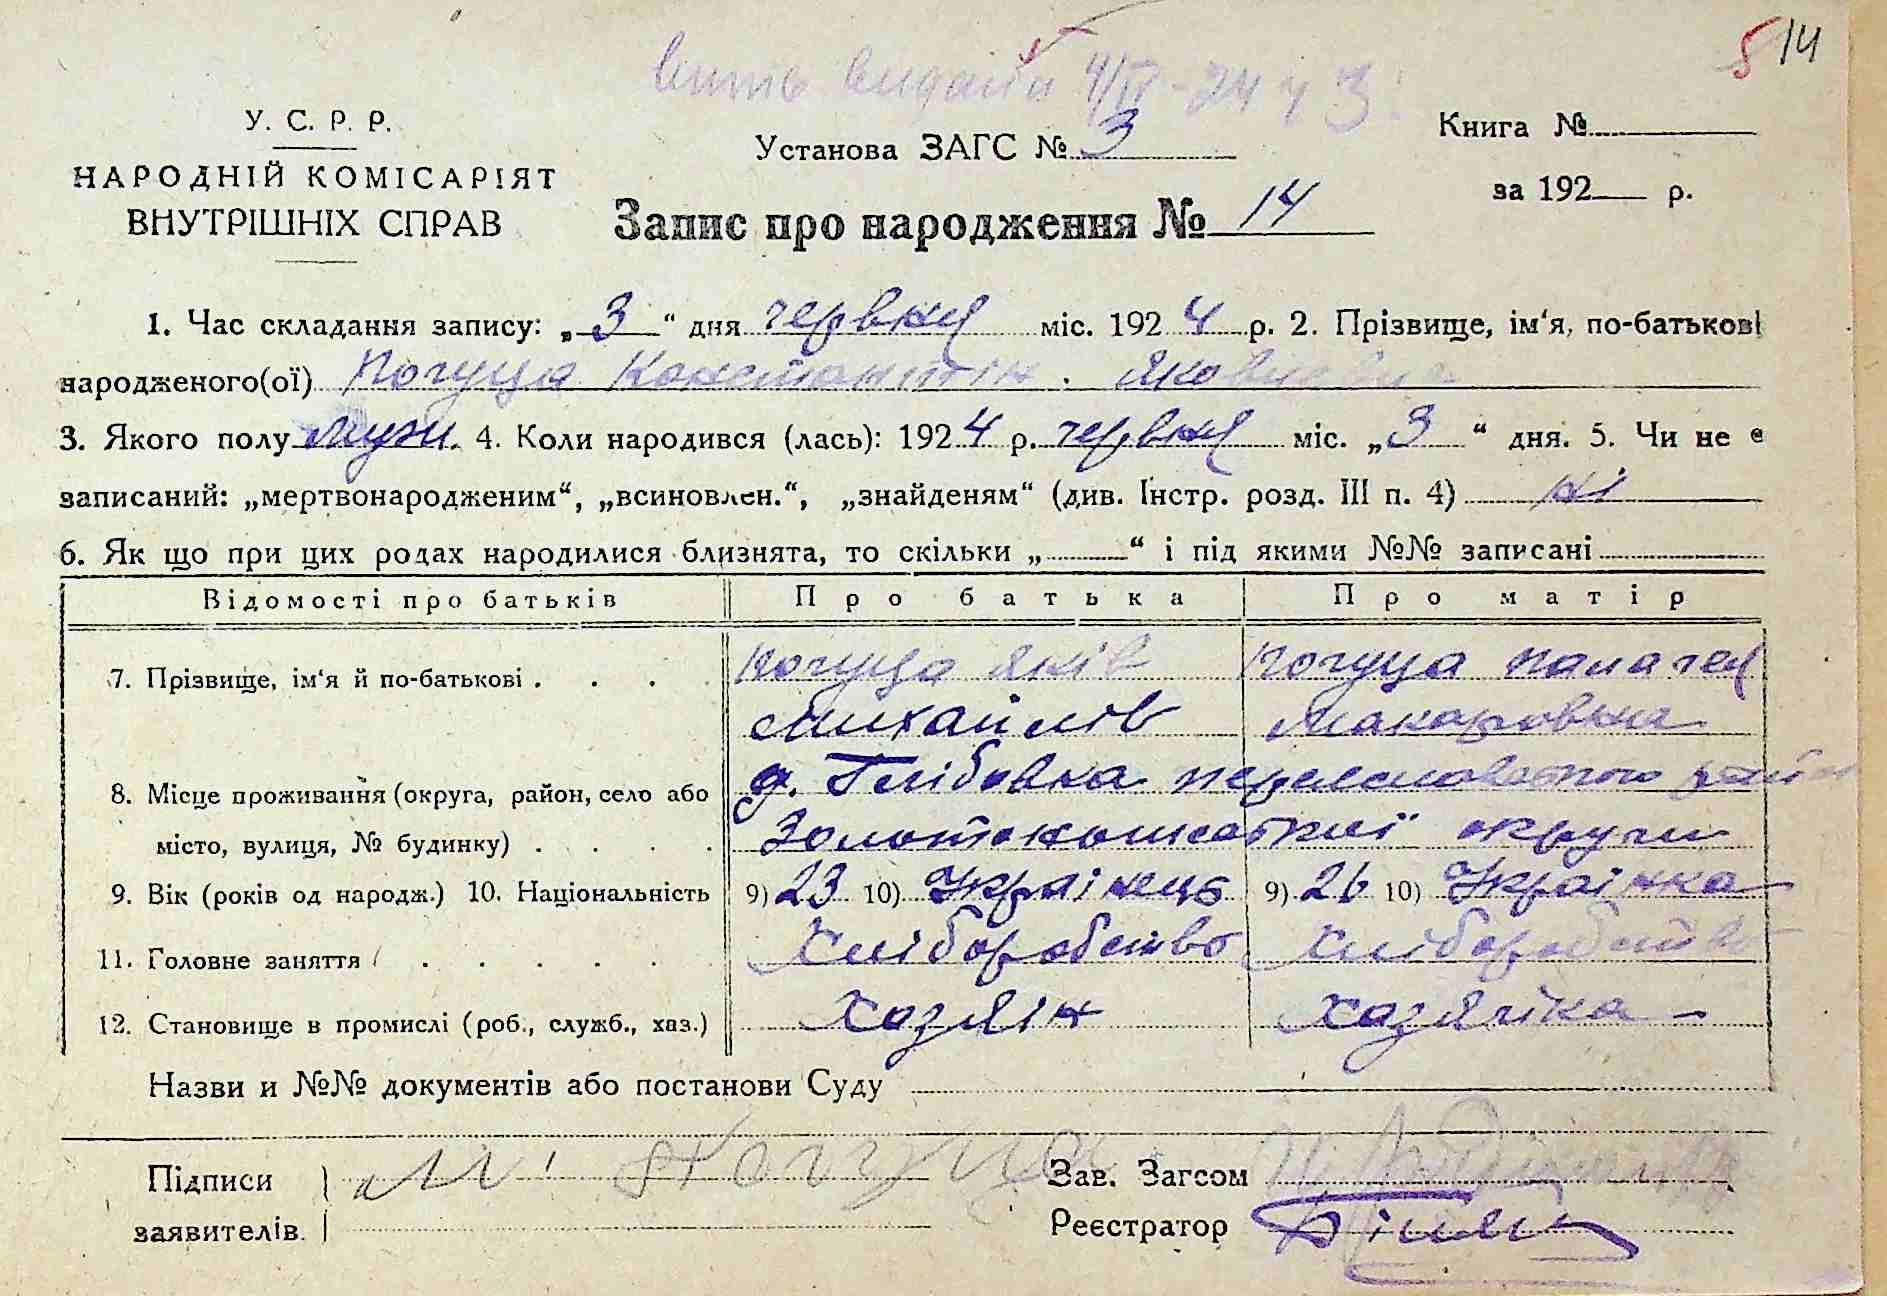 5 14
витъ видан 4/VI-24 ч 3
У. С. Р. Р.
НАРОДНІЙ КОМІСАРІЯТ
ВНУТРІШНІХ СПРАВ
Установа ЗАГС № 3
Книга №
за 192 р.
Запис про народження № 14
1. Час складання запису: „ 3 “ дня червня міс. 192 4 р. 2. Прізвище, ім‘я, по-батькові
народженого(ої) Когуца Константін Яковлевич
3. Якого полу мужи. 4. Коли народився (лась): 192 4 р. червня міс. „ 3 “ дня. 5. Чи не є
записаний: „мертвонародженим“, „всиновлен.“, „знайденям“ (див. Інстр. розд. III п. 4) ні
6. Як що при цих родах народилися близнята, то скільки „ “ і під якими №№ записані
Відомості про батьків Про батька Про матір
7. Прізвище, ім‘я й по-батькові . . . . Когуца Яків Когуца Палагея
Михайлів Макаровна
8. Місце проживання (округа, район, село або д. Глібовка
місто, вулиця, № будинку) . . . . Золотоношської округи
9. Вік (років од народж.) 10. Національність 9) 23 10) Українець 9) 26 10) Українка
11. Головне заняття . . . . . Хліборобство Хліборобство
12. Становище в промислі (роб., служб., хаз.) Хазяїн Хазяйка
Назви и №№ документів або постанови Суду
Підписи М. Когуца Зав. Загсом
заявителів. Реєстратор